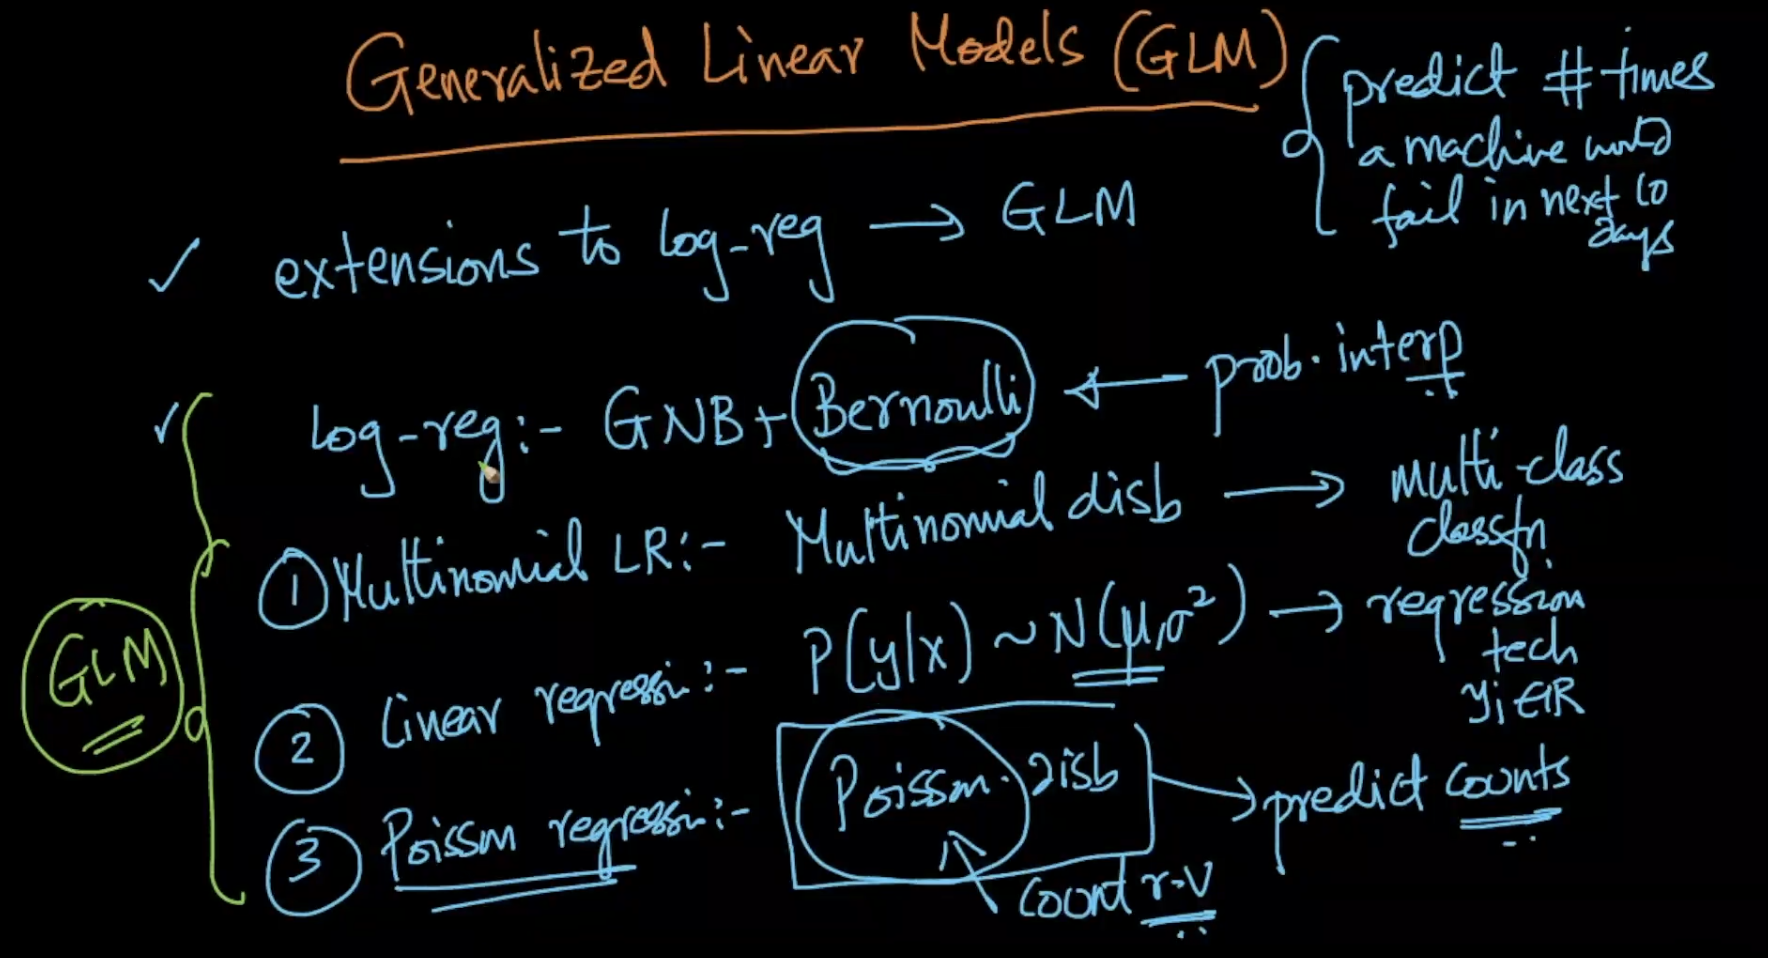 Generalized Linear Models (GLM)
predict # times
a machine would
fail in next 10
days
✓ extensions to log-reg → GLM
✓ log-reg:- GNB + Bernoulli ← prob. interp
① Multinomial LR:- Multinomial disb → multi-class
classfn.
② Linear regressi:- P(y|x) ~ N(μ,σ²) → regression
tech
yi ∈ R
③ Poissn regressi:- Poissn. disb → predict counts
count r.v
GLM